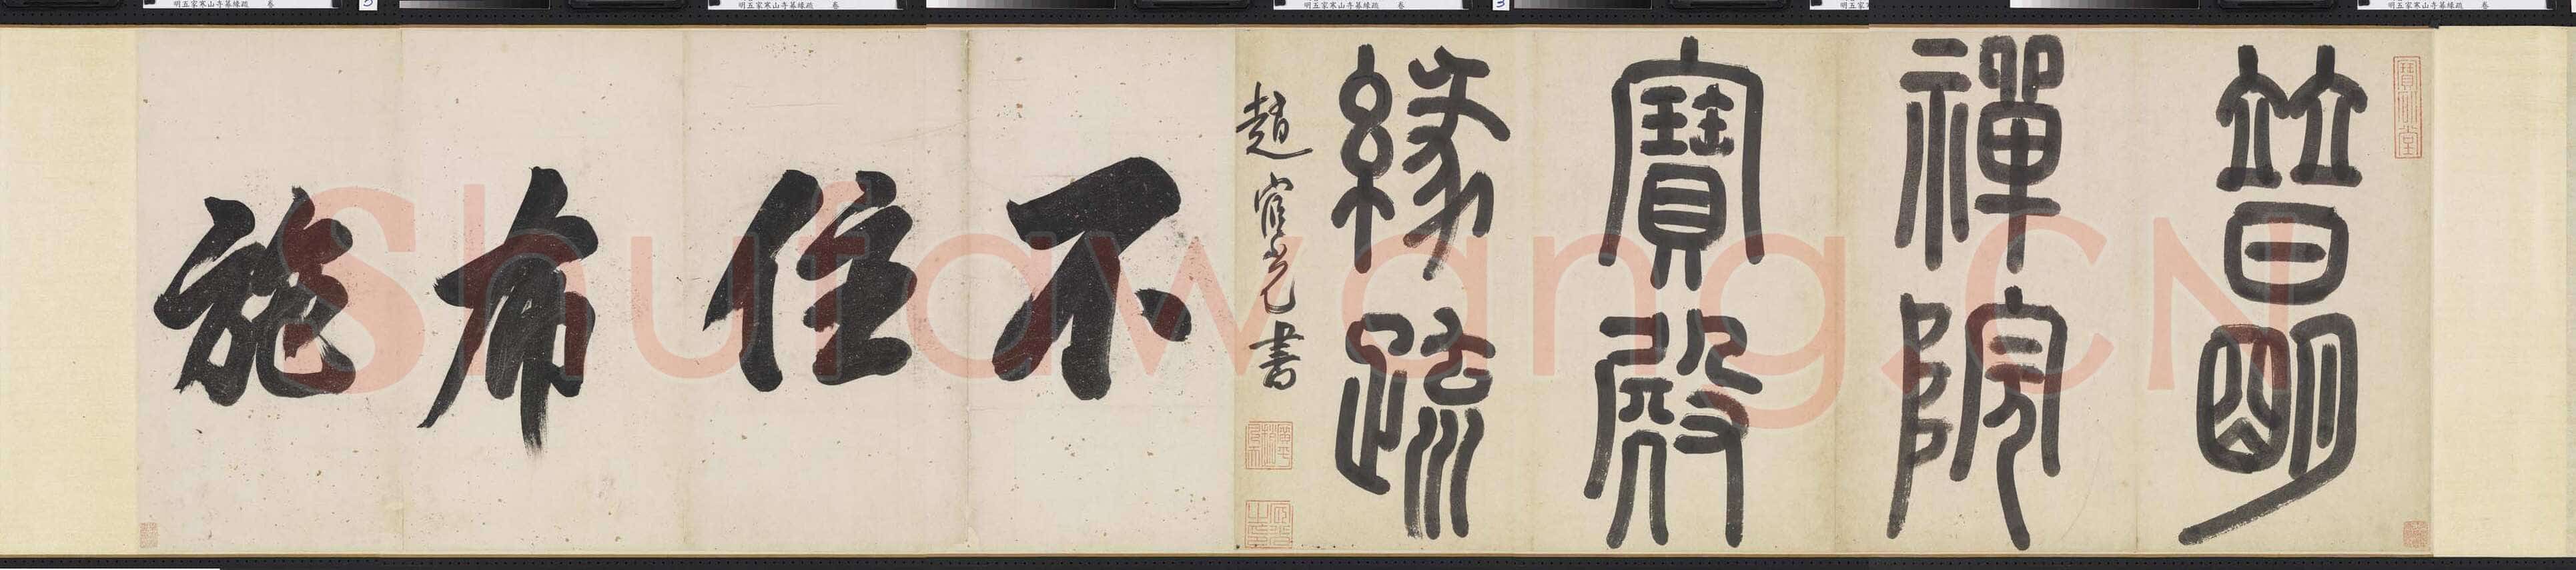 普明
禪院
寶殿
緣疏
趙宧光書
不
住
布
施
寶川堂
明五家寒山寺募緣疏 卷
明五家寒山寺募緣疏 卷
明五家寒山寺募緣疏 卷
明五家寒山寺募緣疏 卷
明五家寒山寺募緣疏 卷
Shufawang.CN